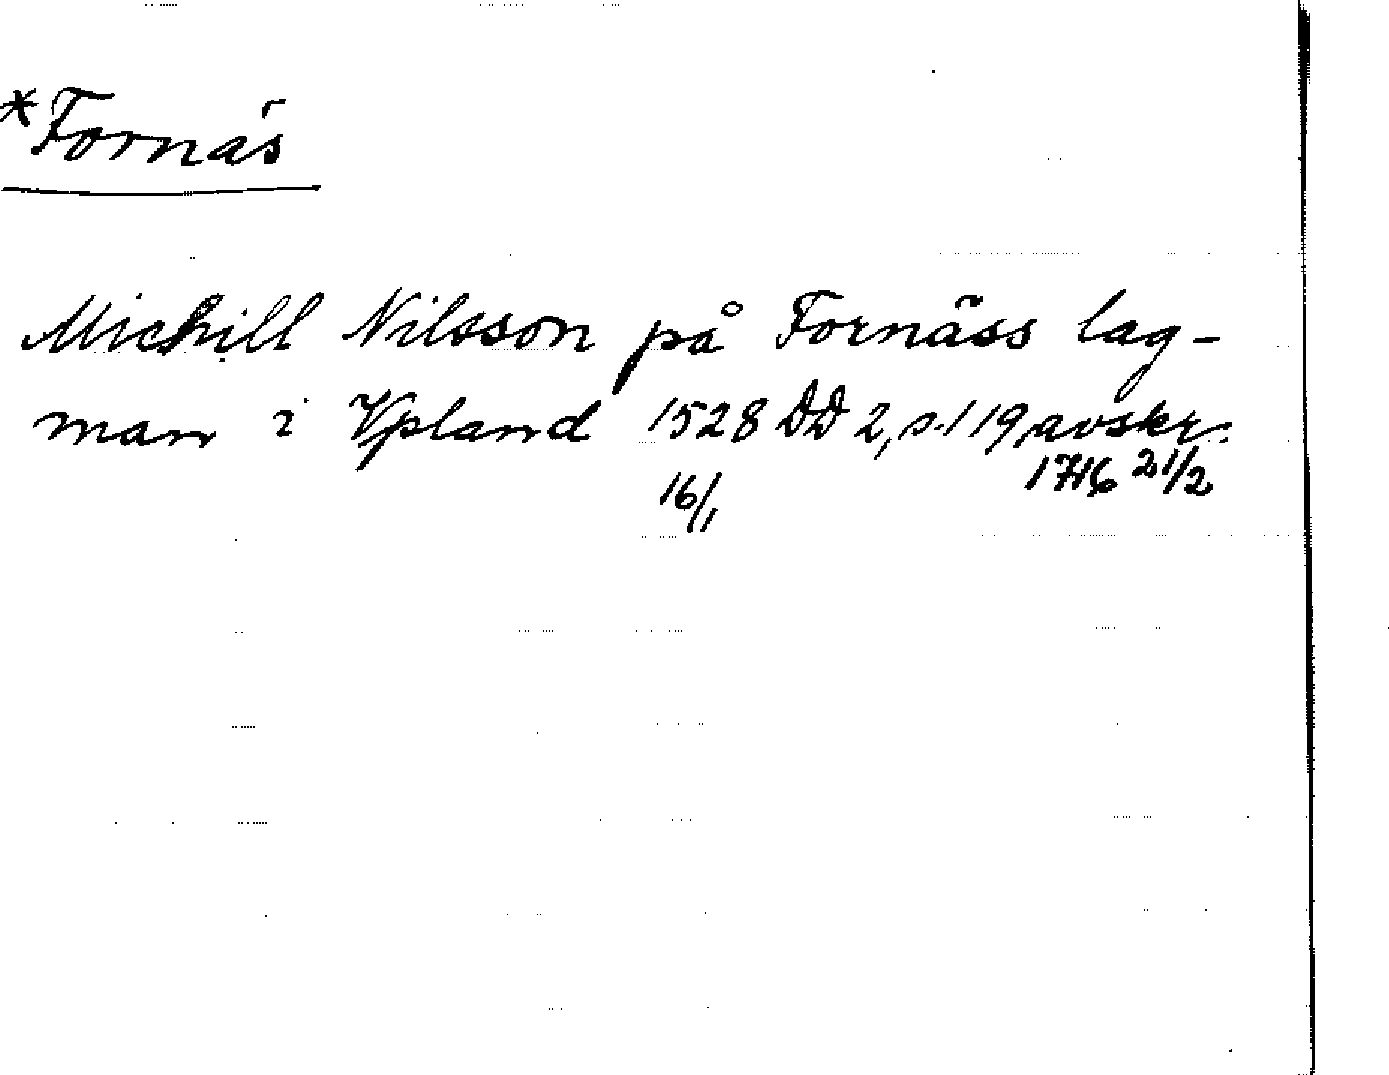 *Fornäs
Michill Nilsson på Fornäss lag-
man i Vpland 1528 DD 2, s. 119, avskr.
16/1 1746 21/2